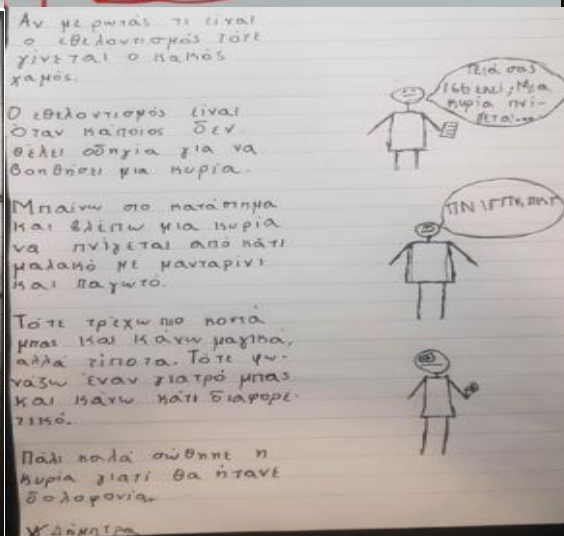 Αν με ρωτάς τι είναι
ο εθελοντισμός τότε
γίνεται ο κακός
χαμός.
Ο εθελοντισμός είναι
όταν κάποιος δεν
θέλει οδηγία για να
βοηθήσει μια κυρία.
Μπαίνω στο κατάστημα
και βλέπω μια κυρία
να πνίγεται από κάτι
μαλακό με μανταρίνι
και παγωτό.
Τότε τρέχω πιο κοντά
μπας και κάνω μαγικά,
αλλά τίποτα. Τότε φω-
νάζω έναν γιατρό μπας
και κάνω κάτι διαφορε-
τικό.
Πάλι καλά σώθηκε η
κυρία γιατί θα ήτανε
δολοφονία.
Δήμητρα
Γειά σας
166 εκεί; Μια
κυρία πνί-
γεται...